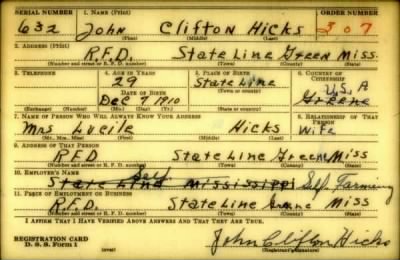 SERIAL NUMBER 1. NAME (Print) ORDER NUMBER
632 John Clifton Hicks 307
(First) (Middle) (Last)
2. ADDRESS (Print)
R.F.D. State Line Green Miss.
(Number and street or R. F. D. number) (Town) (County) (State)
3. TELEPHONE 4. AGE IN YEARS 5. PLACE OF BIRTH 6. COUNTRY OF CITIZENSHIP
29 State Line U.S.A
DATE OF BIRTH Greene
Dec 7 1910
(Exchange) (No.) (Mo.) (Day) (Yr.) (State or country)
7. NAME OF PERSON WHO WILL ALWAYS KNOW YOUR ADDRESS 8. RELATIONSHIP OF THAT PERSON
Mrs Lucile Hicks Wife
(Mr., Mrs., Miss) (First) (Middle) (Last)
9. ADDRESS OF THAT PERSON
RFD State Line Greene Miss
(Number and street or R. F. D. number) (Town) (County) (State)
10. EMPLOYER'S NAME Self
State Line Mississippi Self Farming
11. PLACE OF EMPLOYMENT OR BUSINESS
R.F.D. State Line Greene Miss
(Number and street or R. F. D. number) (Town) (County) (State)
I AFFIRM THAT I HAVE VERIFIED ABOVE ANSWERS AND THAT THEY ARE TRUE.
REGISTRATION CARD John Clifton Hicks
D. S. S. Form 1 (over) (Registrant's signature)